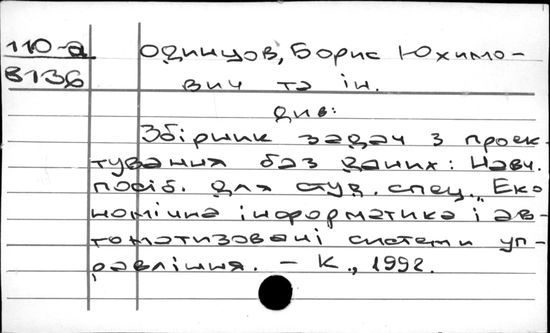 110-а Одинцов, Борис Юхимо-
В136 вич та ін.
див:
Збірник задач з проек-
тування баз даних: Навч.
посіб. для студ. спец. „Еко
номічна інформатика і ав-
томатизовані системи уп-
равління. – К., 1992.